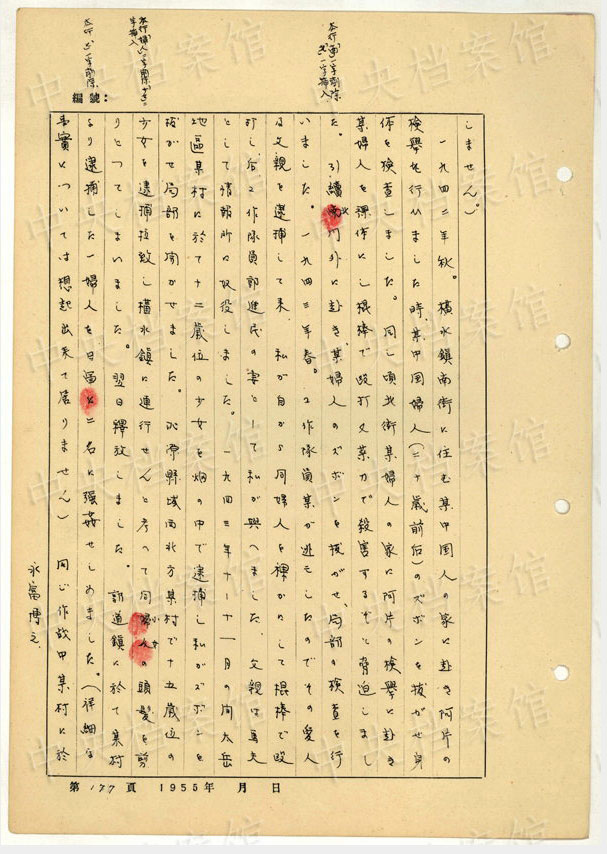 本行

編號：
しません。)
一九四二年秋。橫水鎮南街に住む某中国人の家に赴き阿片の
検挙を行ひました時、某中国婦人(二十歳前后)のズボンを抜がせ身
体を検査しました。同じ頃北街某婦人の家に阿片の検挙に赴き
某婦人を裸体にし棍棒で殴打又 刀で殺害するぞと脅迫しまし
た。引續 門外に赴き、某婦人のズボンを抜がせ、局部の検査を行
いました。一九四三年春。工作隊員某が逃亡したのでその愛人
及父親を逮捕して来、私が自から同婦人を裸かにして棍棒で殴
打し、后工作隊員郭進民の妻として私が與へました、父親は苦力
として情報所に奴役しました。一九四三年十ー十一月の間太岳
地區某村に於て十二歳位の少女を畑の中で逮捕し私がズボンを
抜がせ局部を開かせました。沁源縣城西北方某村で十五歳位の
少女を逮捕拉致し橫水鎮に連行せんと考へて同少女の頭髪を剪
りとつてしまいました。翌日釋放しました。郭道鎮に於て某村
より逮捕した一婦人を 二名に強姦せしめました。(詳細な
事實については想起出来て居りません) 同じ作戦中某村に於
永富博之
第 177 頁 1955年 月 日
中央档案馆